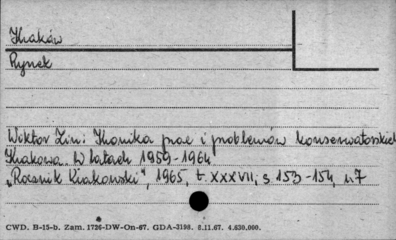 Kraków
Rynek
Wiktor Zin: Kronika prac i problemów konserwatorskich
Krakowa w latach 1959-1964
„Rocznik Krakowski", 1965, t. XXXVII, s 153-154, il 7
CWD. B-15-b. Zam. 1726-DW-On-67. GDA-2198. 8.11.67. 4.630.000.